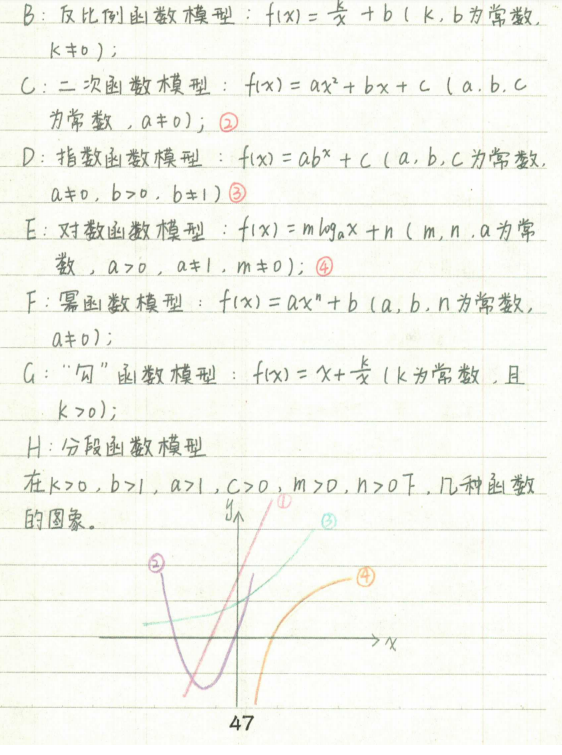 B: 反比例函数模型: f(x) = k/x + b ( k, b 为常数,
k≠0 );
C: 二次函数模型: f(x) = ax² + bx + c ( a. b. c
为常数, a≠0); ②
D: 指数函数模型: f(x) = abˣ + c ( a, b, c 为常数,
a≠0, b>0, b≠1) ③
E: 对数函数模型: f(x) = m logₐx + n ( m, n, a 为常
数, a>0, a≠1, m≠0); ④
F: 幂函数模型: f(x) = axⁿ + b (a, b, n 为常数,
a≠0);
G: “勾”函数模型: f(x) = x + k/x ( k 为常数, 且
k>0);
H: 分段函数模型
在 k>0, b>1, a>1, c>0, m>0, n>0 下, 几种函数
的图象。
y
①
③
②
④
x
47